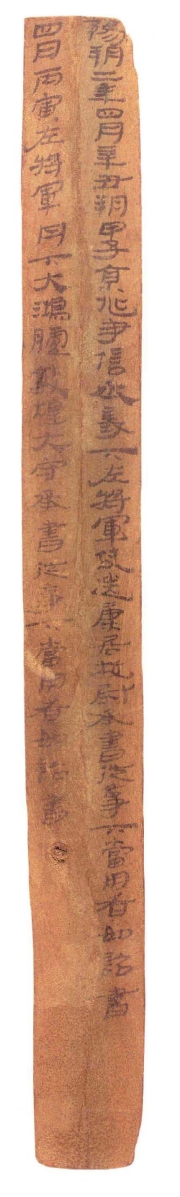 陽朔二年四月辛丑朔甲子京兆尹信丞義下左將軍使送康居校尉承書從事下當用者如詔書
四月丙寅左將軍丹下大鴻臚敦煌大守承書從事下當用者如詔書